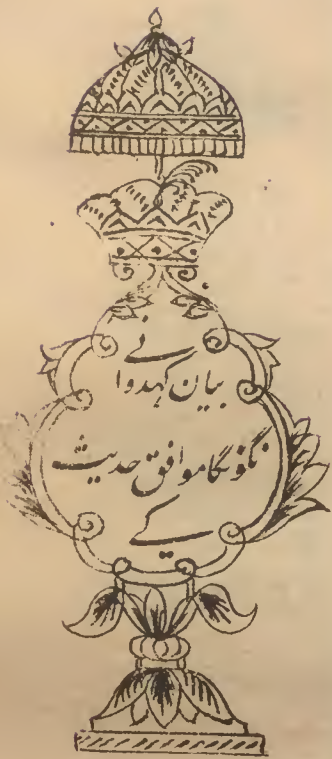 بیان کہدوانے
نگونگا موافق حدیث
کے